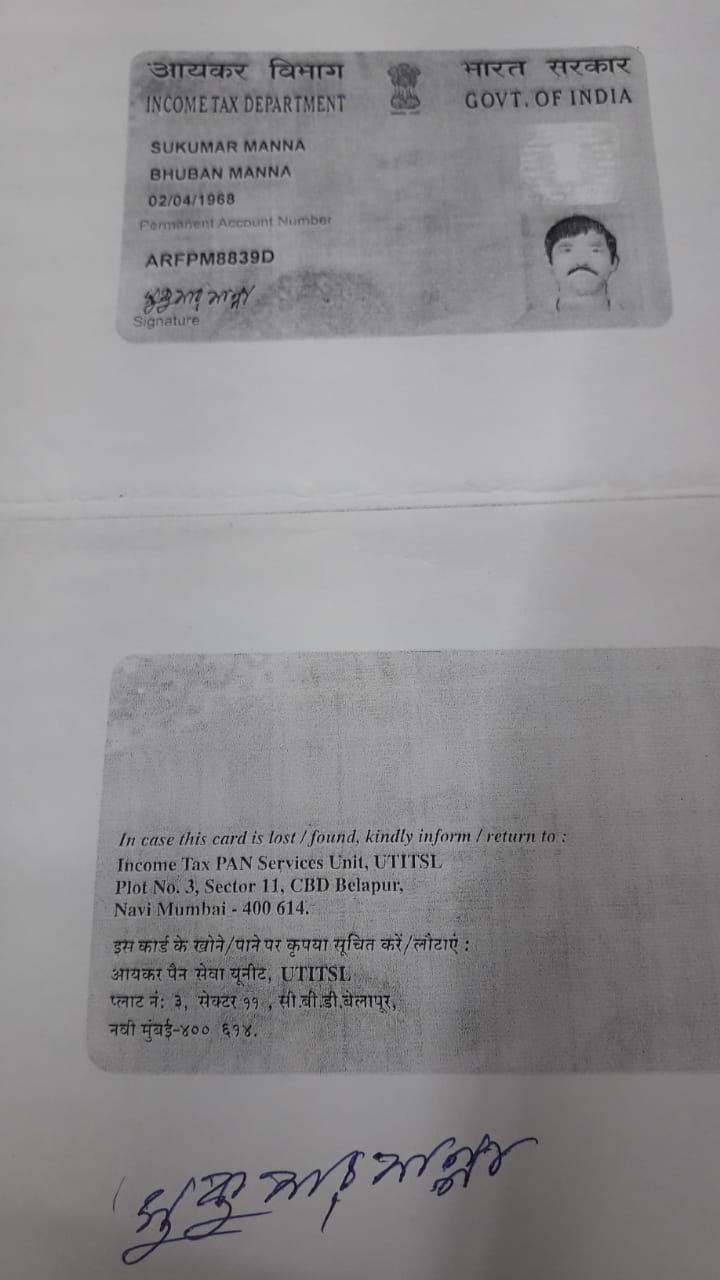 आयकर विभाग
INCOME TAX DEPARTMENT
भारत सरकार
GOVT. OF INDIA
SUKUMAR MANNA
BHUBAN MANNA
02/04/1968
Permanent Account Number
ARFPM8839D
সুকুমার মান্না
Signature
In case this card is lost / found, kindly inform / return to :
Income Tax PAN Services Unit, UTITSL
Plot No. 3, Sector 11, CBD Belapur,
Navi Mumbai - 400 614.
इस कार्ड के खोने/पाने पर कृपया सूचित करें/लौटाएं :
आयकर पैन सेवा यूनीट, UTITSL
प्लाट नं: ३, सेक्टर ११ , सी.बी.डी.बेलापूर,
नवी मुंबई-४०० ६१४.
সুকুমার মান্না